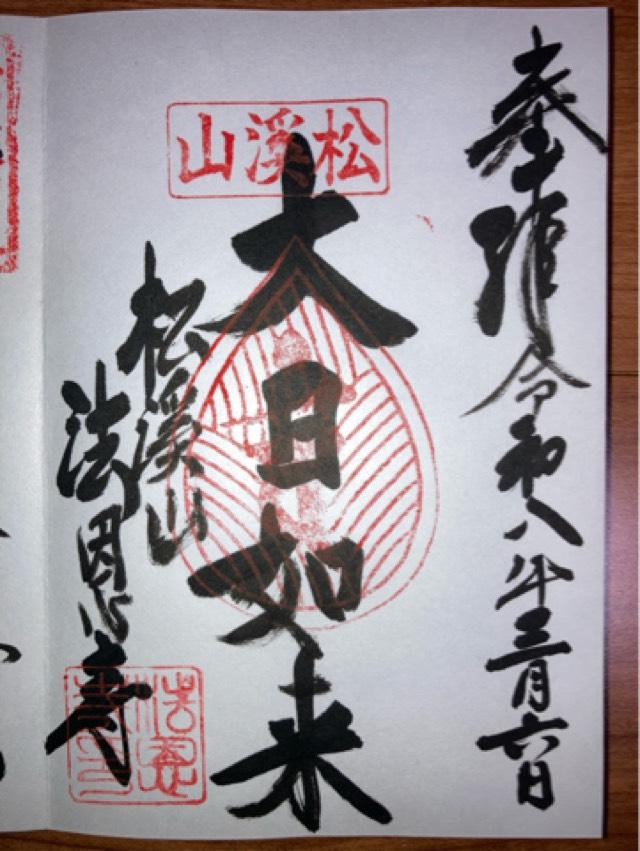 奉拝 令和八年三月六日
松渓山
大日如来
松渓山
法恩寺
法恩寺印